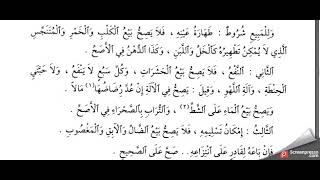 وَلِلْمَبِيعِ شُرُوطٌ : طَهَارَةُ عَيْنِهِ ، فَلَا يَصِحُّ بَيْعُ الْكَلْبِ وَالْخَمْرِ وَالْمُتَنَجِّسِ
الَّذِي لَا يُمْكِنُ تَطْهِيرُهُ كَالْخَلِّ وَاللَّبَنِ ، وَكَذَا الدُّهْنُ فِي الْأَصَحِّ .
الثَّانِي : النَّفْعُ ، فَلَا يَصِحُّ بَيْعُ الْحَشَرَاتِ ، وَكُلِّ سَبُعٍ لَا يَنْفَعُ ، وَلَا حَبَّتَيِ
الْحِنْطَةِ ، وَآلَةِ اللَّهْوِ ، وَقِيلَ : يَصِحُّ فِي الْآلَةِ إِنْ عُدَّ رُضَاضُهَا(١) مَالًا .
وَيَصِحُّ بَيْعُ الْمَاءِ عَلَى الشَّطِّ(٢) ، وَالتُّرَابِ بِالصَّحْرَاءِ فِي الْأَصَحِّ .
الثَّالِثُ : إِمْكَانُ تَسْلِيمِهِ ، فَلَا يَصِحُّ بَيْعُ الضَّالِّ وَالْآبِقِ وَالْمَغْصُوبِ
فَإِنْ بَاعَهُ لِقَادِرٍ عَلَى انْتِزَاعِهِ . . صَحَّ عَلَى الصَّحِيحِ .
Screenpresso